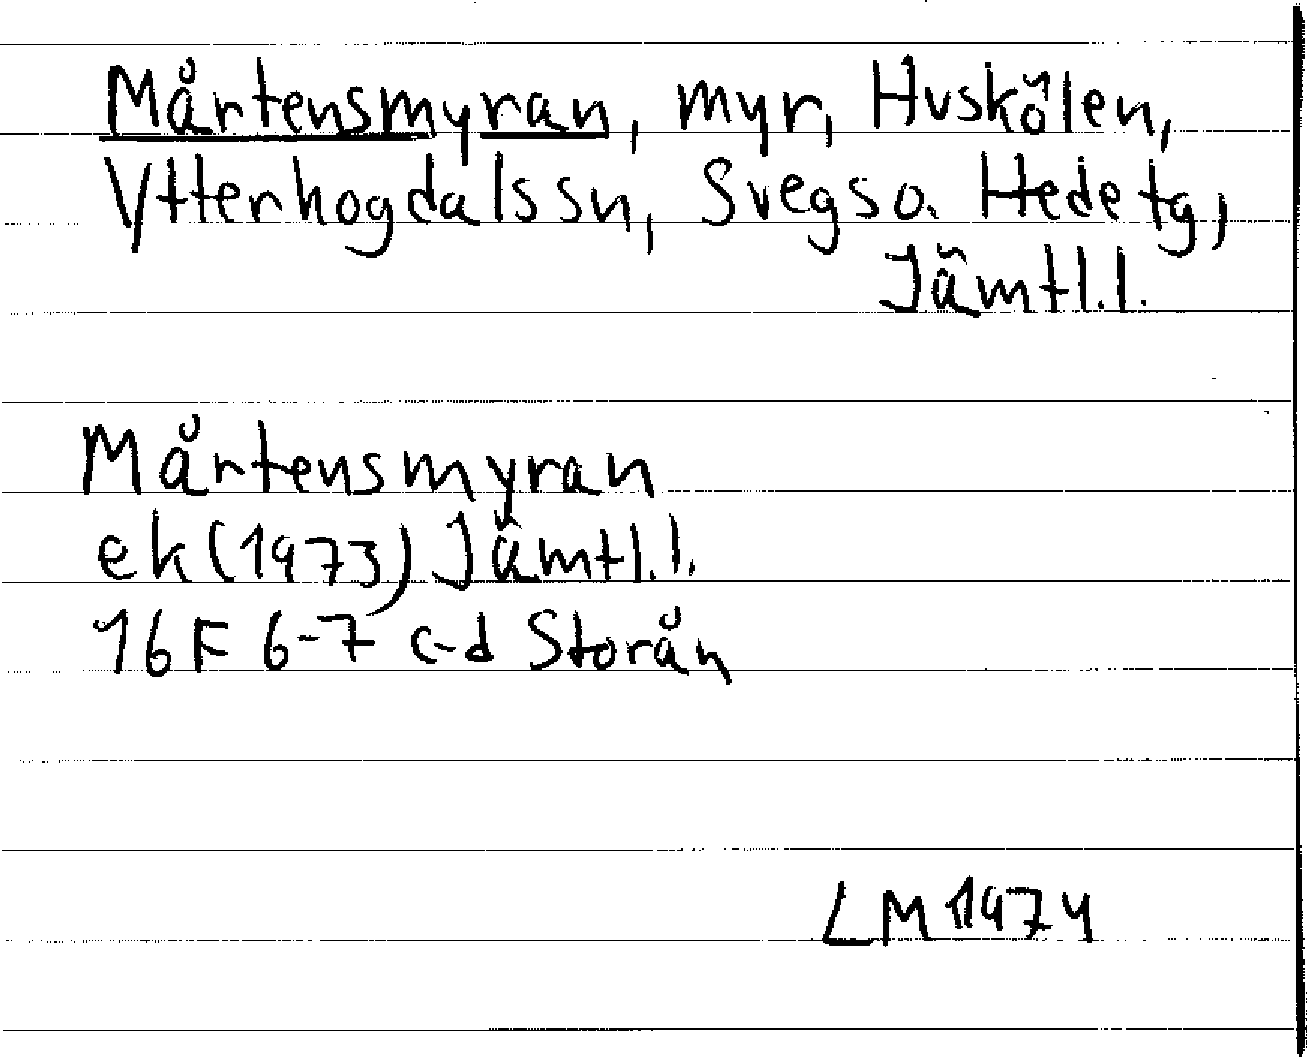 Mårtensmyran, myr, Huskölen,
Ytterhogdals sn, Svegs o. Hede tg,
Jämtl.l.
Mårtensmyran
ek (1973) Jämtl.l.
16F 6-7 c-d Storån
LM 1974